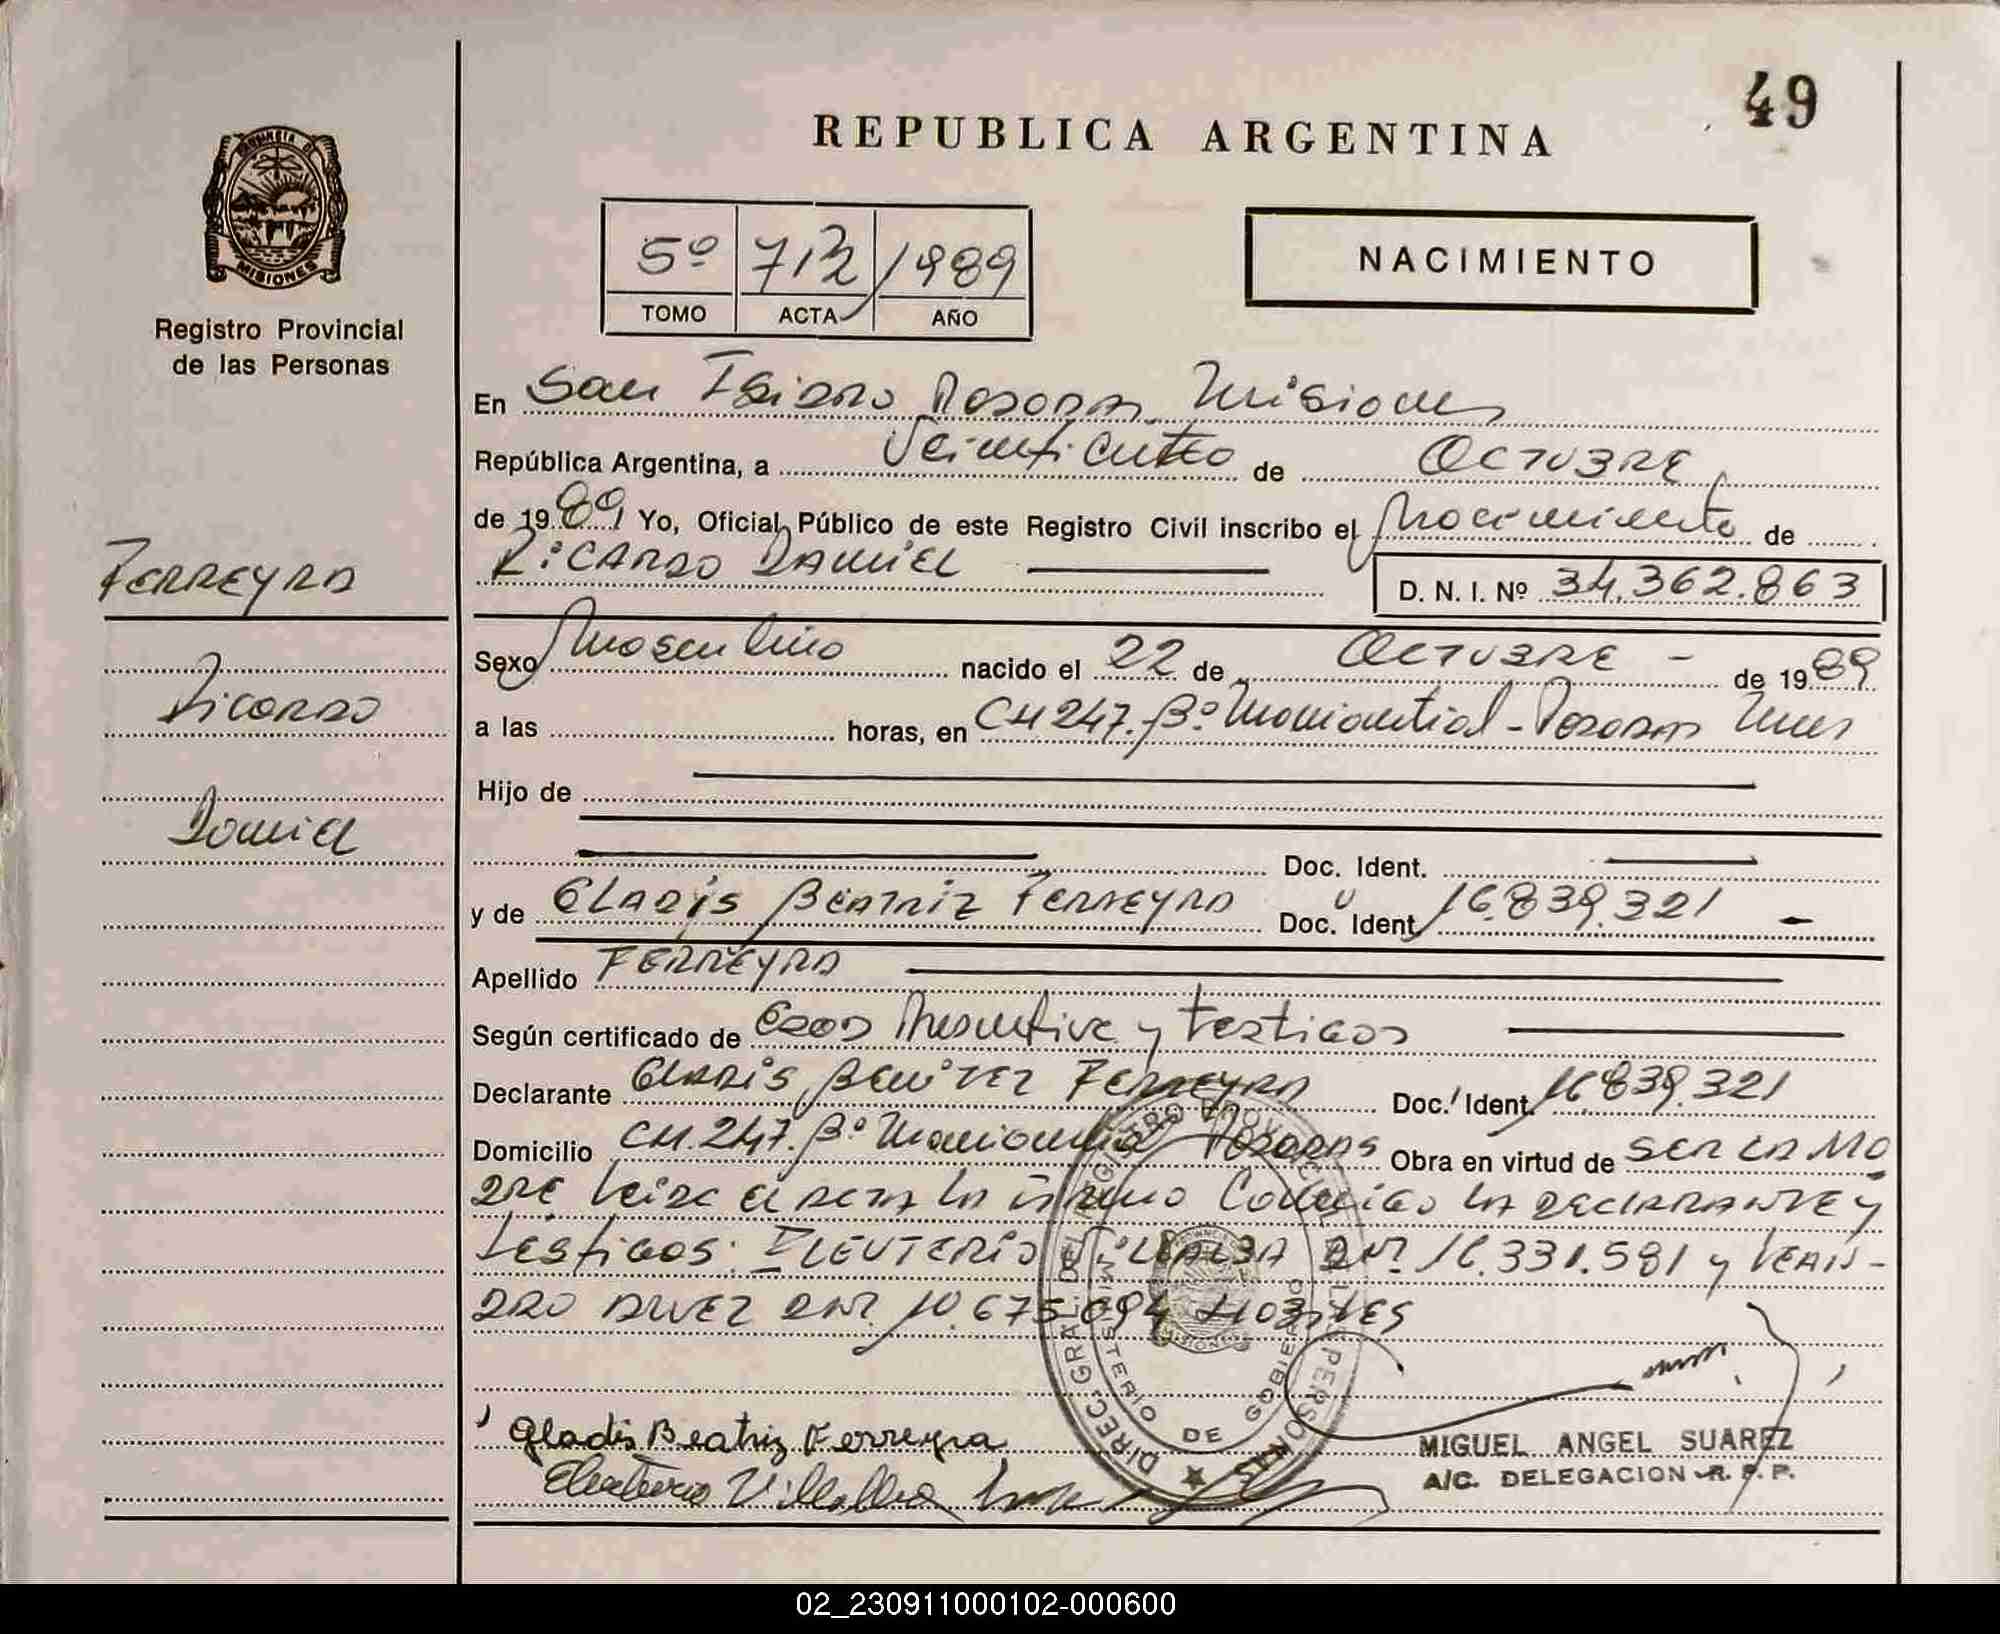 49
REPUBLICA ARGENTINA
PROVINCIA DE
MISIONES
Registro Provincial
de las Personas
5º 712 1989
TOMO ACTA AÑO
NACIMIENTO
En San Isidro Posadas Misiones
República Argentina, a Veinticuatro de OCTUBRE
de 1989 Yo, Oficial Público de este Registro Civil inscribo el Nacimiento de
RICARDO DANIEL
D. N. I. Nº 34.362.863
FERREYRA
Ricardo
Daniel
Sexo Masculino nacido el 22 de OCTUBRE - de 1989
a las horas, en CH 247. Bº Manantial - Posadas Mnes
Hijo de
Doc. Ident.
y de GLADIS BEATRIZ FERREYRA Doc. Ident. 16.839.321 -
Apellido FERREYRA
Según certificado de y testigos
Declarante GLADIS FERREYRA Doc. Ident. 16.839.321
Domicilio CH. 247. Bº Posadas Obra en virtud de SER LA MA
DRE Leida el acta la firma Conmigo LA DECLARANTE y
testigos: ELEUTERIO VILLALBA DNI. 16.331.581 y LEAN-
DRO DNI. 10.675.094
DIREC. GRAL. DEL REGISTRO PROVINCIAL DE LAS PERSONAS
MINISTERIO DE GOBIERNO
PROVINCIA DE MISIONES
Gladis Beatriz Ferreyra
Eleuterio Villalba
MIGUEL ANGEL SUAREZ
A/C. DELEGACION R. P. P.
02_230911000102-000600